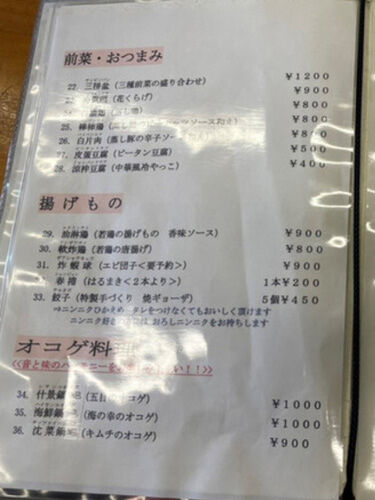 前菜・おつまみ
22. 三拼盆 (三種前菜の盛り合わせ) ¥1200
(花くらげ) ¥900
24. ¥800
25. 棒棒鶏 (蒸し ソース ¥800
26. 白片肉 (蒸し豚の辛子ソ
27. 皮蛋豆腐 (ピータン豆腐) ¥500
28. 涼拌豆腐 (中華風冷やっこ) ¥400
揚げもの
29. 油淋鶏 (若鶏の揚げもの 香味ソース) ¥900
30. 軟炸鶏 (若鶏の唐揚げ) ¥800
31. 炸蝦球 (エビ団子<要予約>) ¥900
32. 春捲 (はるまき<2本より>) 1本¥200
33. 餃子 (特製手づくり 焼ギョーザ) 5個¥450
⇨ニンニクひかえめ タレをつけなくてもおいしく頂けます
ニンニク好き には おろしニンニクをお持ちします
オコゲ料理
<<音と味のハ ニーを い!!>>
34. 什景鍋巴 (五目のオコゲ) ¥1000
35. 海鮮鍋巴 (海の幸のオコゲ) ¥1000
36. 沈菜鍋巴 (キムチのオコゲ) ¥900